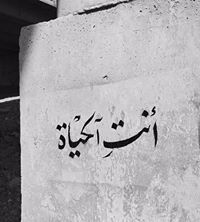 أنت الحياة